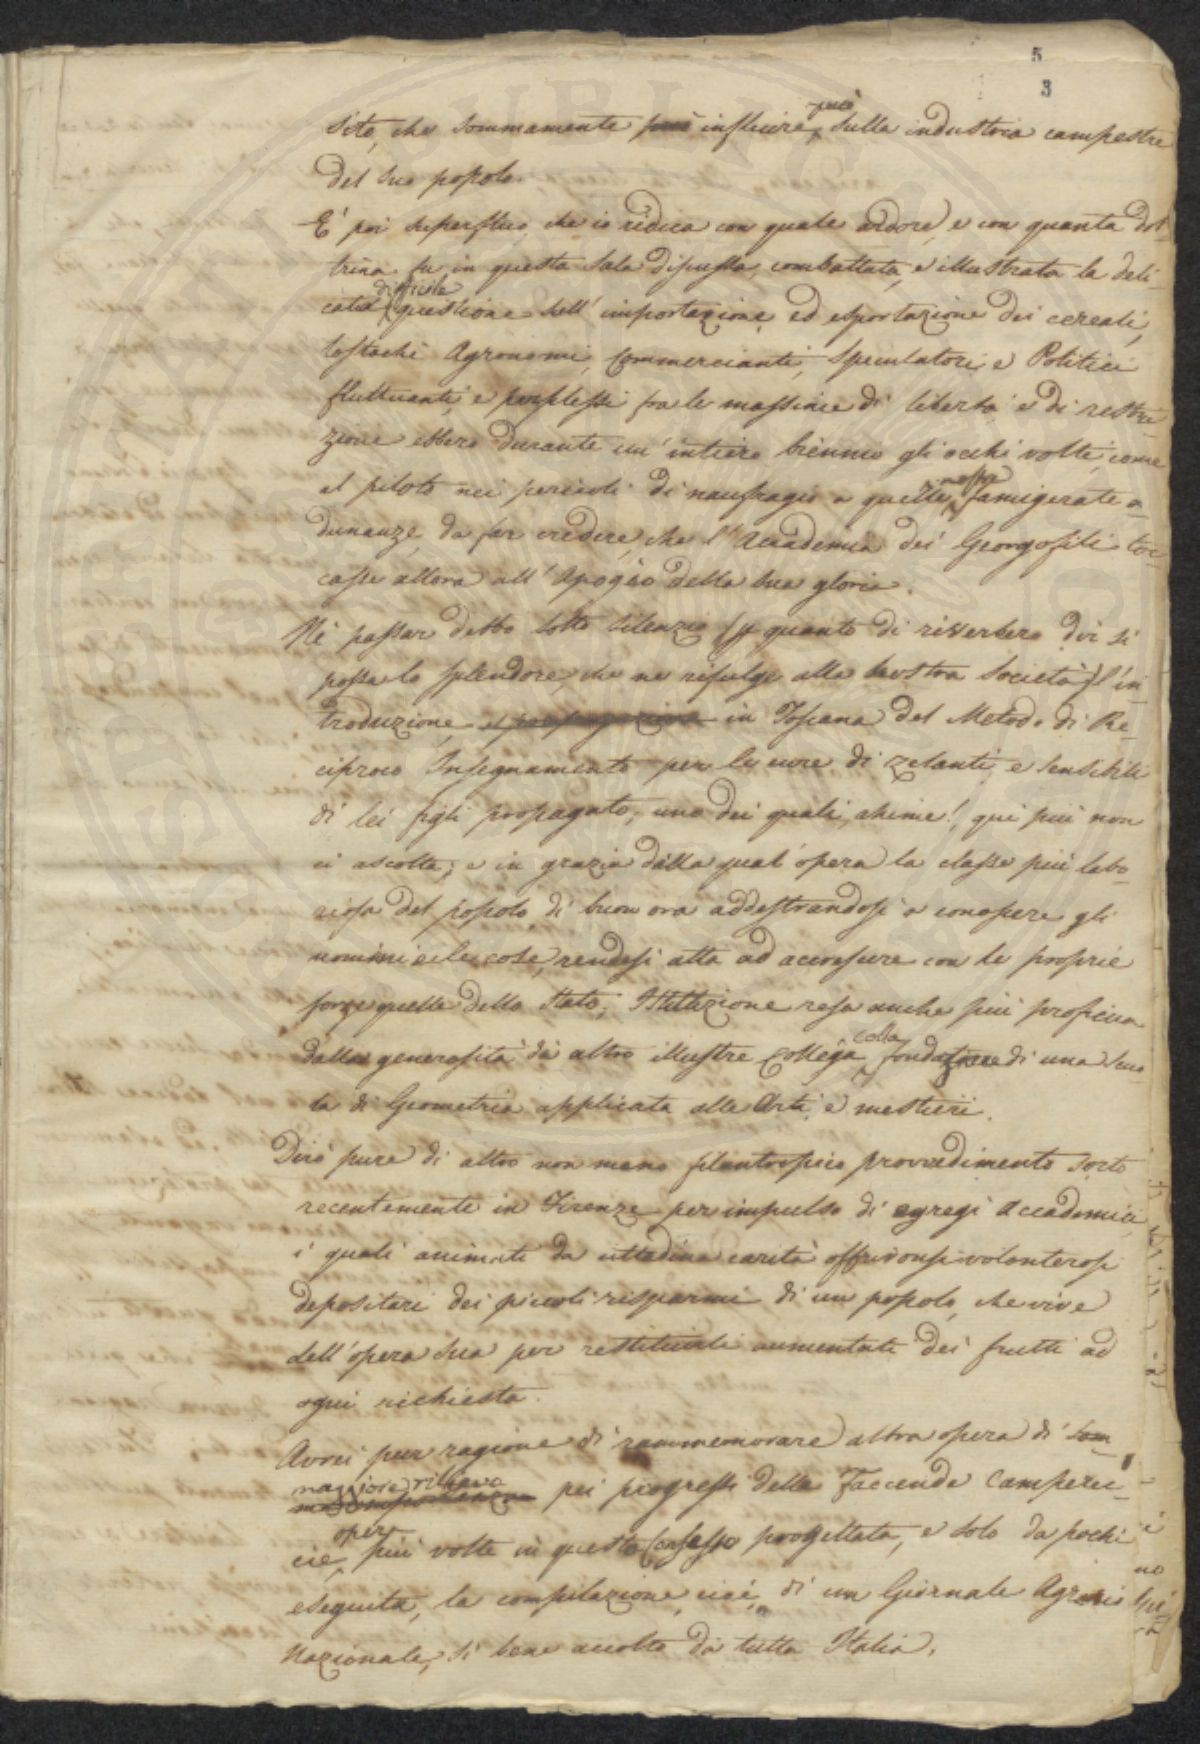 5
3
può
sito, che sommamente può influire sulla industria campestre
del suo popolo.
E' poi superfluo, che io ridica con quale ardore, e con quanta dot-
trina fu in questa sala discussa, combattuta, e illustrata la deli-
difficile
cata questione dell' importazione, ed esportazione dei cereali,
tostochè Agronomi, Commercianti, Speculatori, e Politici
fluttuanti, e perplessi fra le massime di libertà e di restri-
zione ebbero durante un' intiero biennio gli occhi volti, come
nostre
il piloto nei pericoli di naufragio a quelle famigerate a-
dunanze, da far credere, che l' Accademia dei Georgofili toc-
casse allora all' Apogèo della sua gloria.
Nè passar debbo sotto silenzio (p quanto di riverbero dir si
possa lo splendore, che ne rifulge alla nostra Società) l'in-
troduzione, e propagazione in Toscana del Metodo di Re-
ciproco Insegnamento per le cure di zelanti, e sensibili
di lei figli propagato, uno dei quali, ahime!, qui più non
ci ascolta; e in grazia della qual' opera la classe più labo-
riosa del popolo di buon ora addestrandosi a conoscere gli
uomini e le cose, rendesi atta ad accrescere con le proprie
forze quelle dello Stato; Istituzione resa anche più proficua
colla
dalla generosità di altro illustre Collega fondazione di una Scuo-
la di Geometria applicata alle Arti, e mestieri.
Dirò pure di altro non meno filantropico provvedimento sorto
recentemente in Firenze per impulso di egregi Accademici,
i quali animati da cittadina carità offrironsi volonterosi
depositari dei piccoli risparmi di un popolo, che vive
dell' opera sua per restituirli aumentati dei frutti ad
ogni richiesta.
Avrei pur ragione di rammemorare altra opera di som-
maggiore rilievo
ma importanza pei progressi delle Faccende Camperec-
opera
cie, più volte in questo Consesso progettata, e solo da pochi
eseguita, la compilazione, cioè, di un Giornale Agrario
Nazionale, sì bene accolto da tutta Italia.